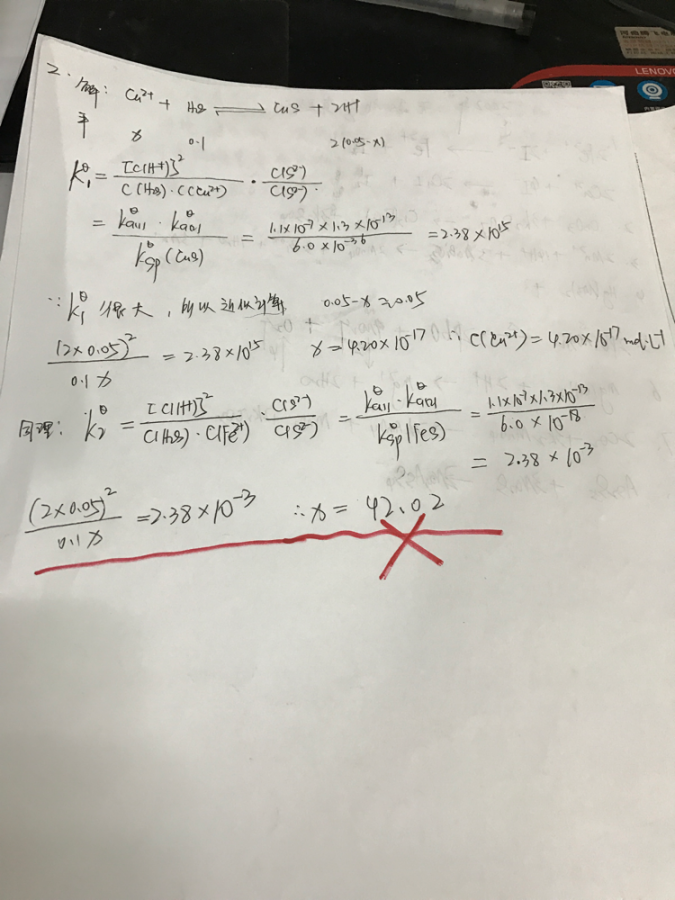 2. 解: Cu²⁺ + H₂S ⇌ CuS + 2H⁺
平 x 0.1 2(0.05-x)
K₁^θ = [C(H⁺)]² / C(H₂S)·C(Cu²⁺) · C(S²⁻) / C(S²⁻)
= K^θa(1)·K^θa(2) / K^θsp(CuS) = 1.1×10⁻⁷×1.3×10⁻¹³ / 6.0×10⁻³⁶ = 2.38×10¹⁵
∵ K₁^θ 很大, 所以近似计算 0.05-x≈0.05
(2×0.05)² / 0.1x = 2.38×10¹⁵ x = 4.20×10⁻¹⁷ ∴ C(Cu²⁺) = 4.20×10⁻¹⁷ mol·L⁻¹
同理: K₂^θ = [C(H⁺)]² / C(H₂S)·C(Fe²⁺) · C(S²⁻) / C(S²⁻) = K^θa(1)·K^θa(2) / K^θsp(FeS) = 1.1×10⁻⁷×1.3×10⁻¹³ / 6.0×10⁻¹⁸
= 2.38×10⁻³
(2×0.05)² / 0.1x = 2.38×10⁻³ ∴ x = 42.02
LENOVO